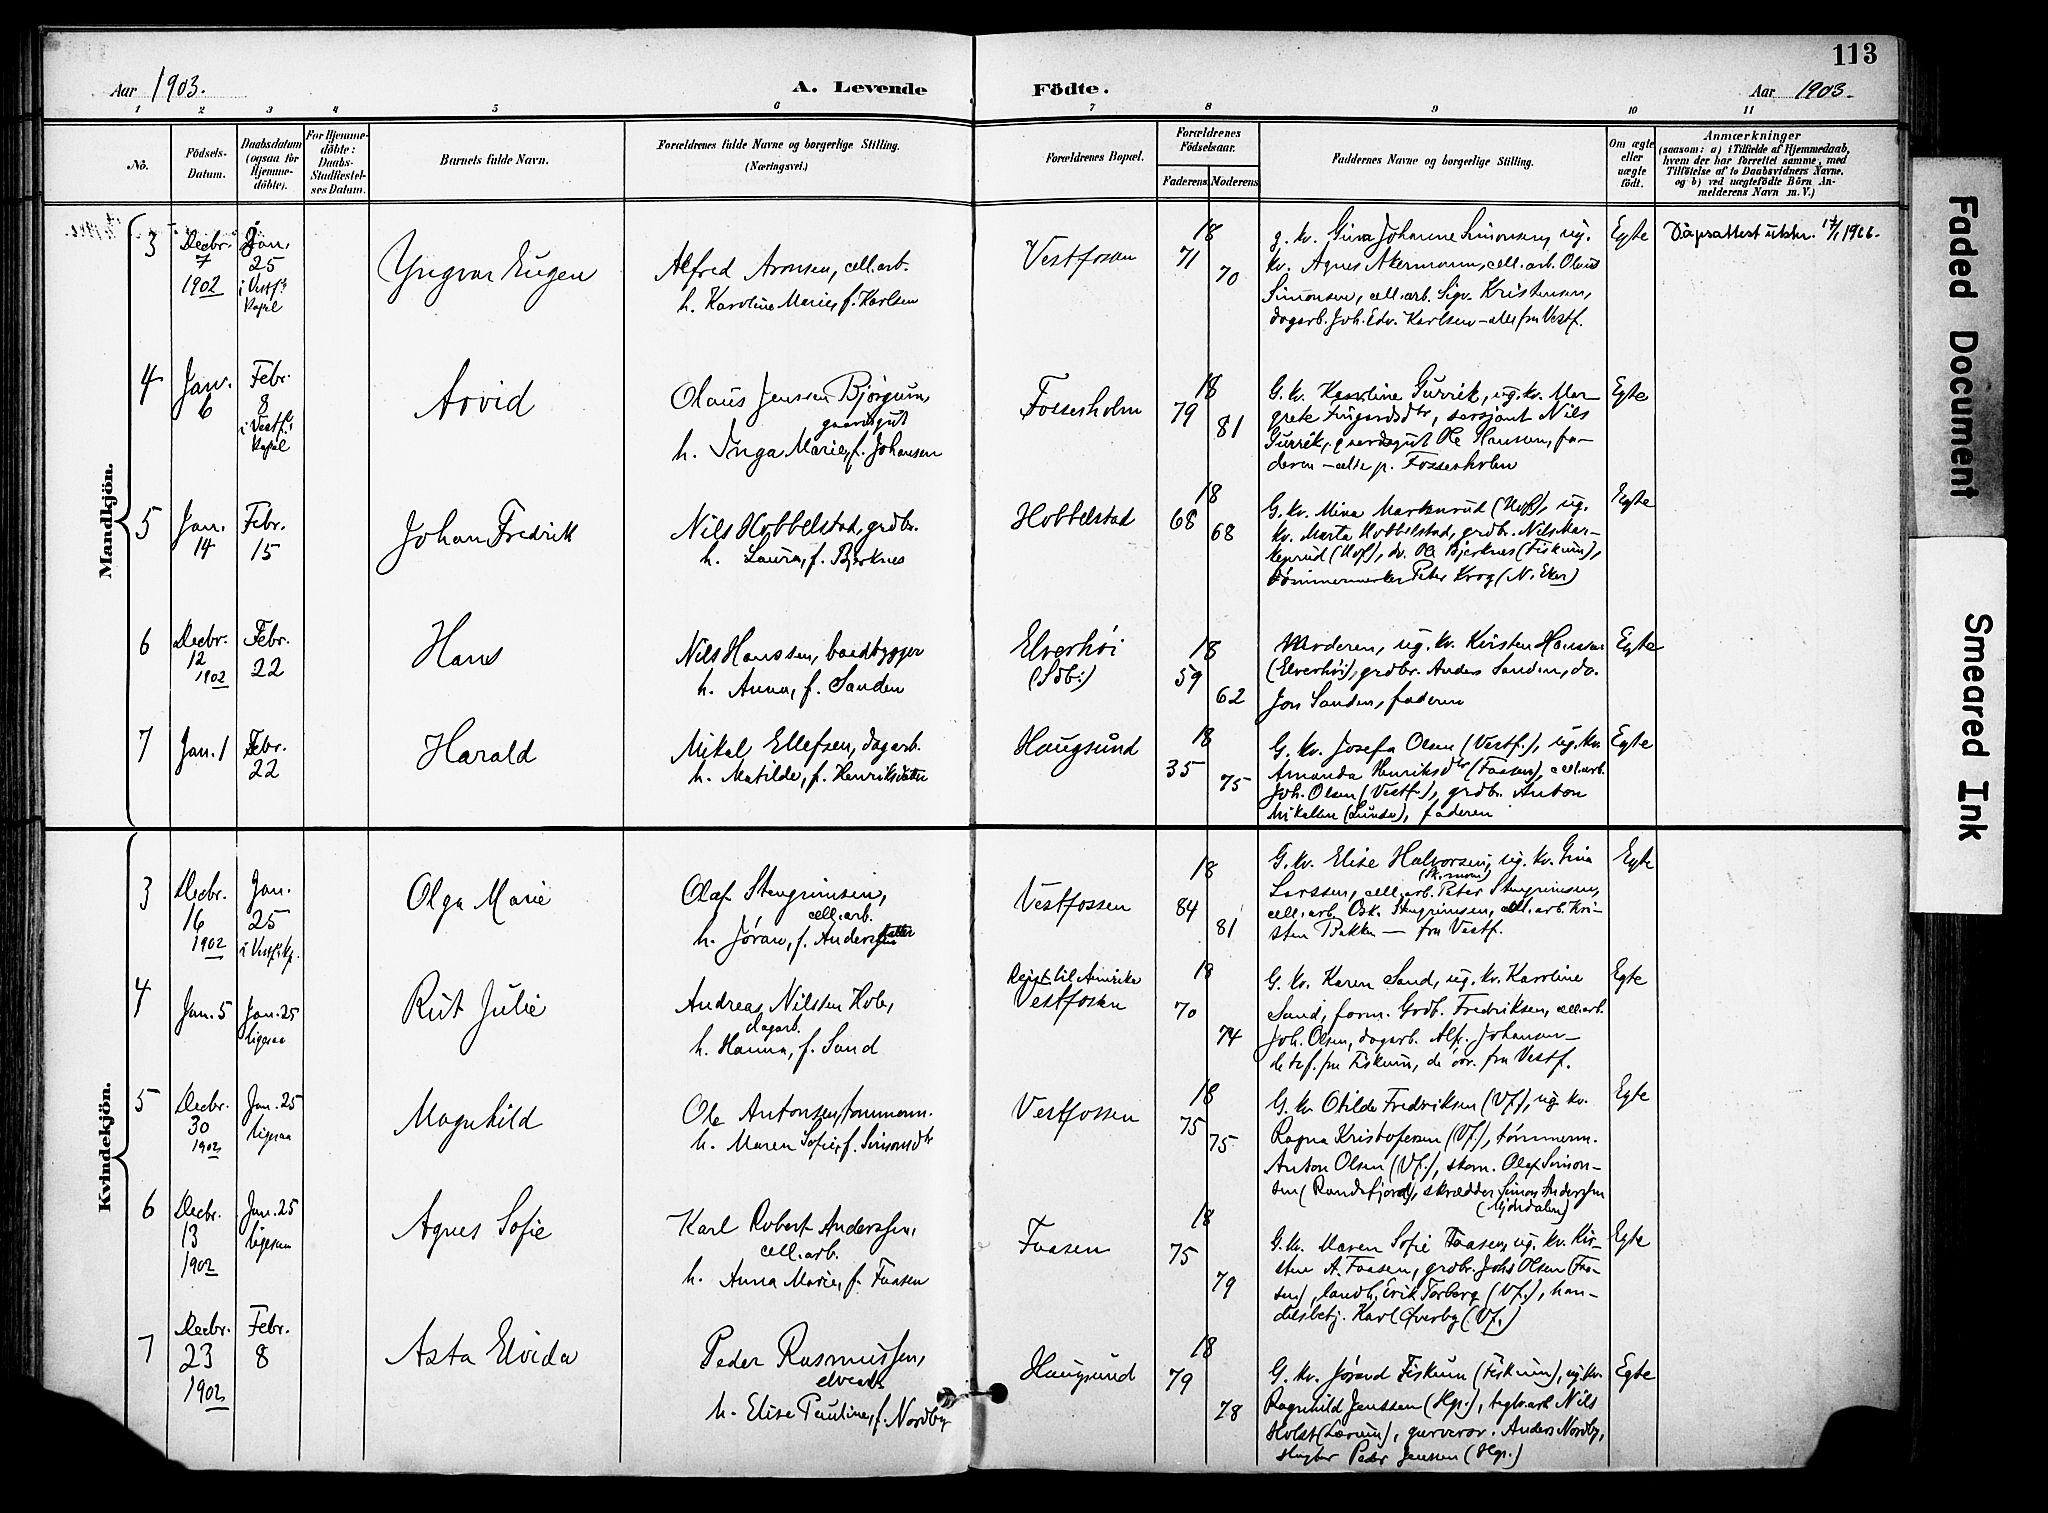 113
Aar 1903.
A. Levende Födte.
Aar 1903.
1 2 3 4 5 6 7 8 9 10 11
No.
Födsels-
Datum.
Daabsdatum
(ogsaa for
Hjemme-
döbte).
For Hjemme-
döbte:
Daabs-
Stadfæstel-
ses Datum.
Barnets fulde Navn.
Forældrenes fulde Navne og borgerlige Stilling.
(Næringsvei.)
Forældrenes Bopæl.
Forældrenes
Födselsaar.
Faderens Moderens
Faddernes Navne og borgerlige Stilling.
Om ægte
eller
uægte
födt.
Anmærkninger
(saasom: a) i Tilfælde af Hjemmedaab,
hvem der har forrettet samme, med
Tilföielse af to Daabsvidners Navne,
og b) ved uægtefödte Börn An-
melderens Navn m. V.)
Mandkjön.
3
Decbr.
7
1902
Jan.
25
i Vestf.
Kapel
Yngvar Eugen
Alfred Aronsen, cell. arb.
h. Karoline Marie, f. Karlsen
Vestfossen
18
71
70
g. kv. Gina Johanne Simonsen, ug.
kv. Agnes Akermann, cell. arb. Olaus
Simonsen, cell. arb. Sigv. Kristensen,
dagarb. Joh. Edv. Karlsen – alle fra Vestf.
Egte
Dåpsattest utstr.
4
Jan.
6
Febr.
8
i Vestf.
Kapel
Arvid
Olaus Jenssen Bjørgum
gaardsgut
h. Inga Marie, f. Johansen
Fossesholm
18
79
81
G. kv. Karoline Gurrik, ug. kv. Mar-
grete, sersjant Nils
Gurrik, gaardsgut Ole Hansen, fa-
deren – alle p. Fossesholm
Egte
5
Jan.
14
Febr.
15
Johan Fredrik
Nils Hobbelstad, grdbr.
h. Laura, f. Bjerknes
Hobbelstad
18
68
68
G. kv. Mina Markerud (Hof), ug.
kv. Marta Hobbelstad, grdbr. Nils Mar-
kerud (Hof), do. Ole Bjerknes (Fiskum),
Peter Krog (N. Eker)
Egte
6
Decbr.
12
1902
Febr.
22
Hans
Nils Hanssen, baadbygger
h. Anna, f. Sanden
Elverhöi
18
59
62
Moderen, ug. kv. Kirsten Hanssen
(Elverhöi), grdbr. Anders Sanden, do.
Jon Sanden, faderen
Egte
7
Jan. 1
Febr.
22
Harald
Mikal Ellefsen, dagarb.
h. Matilde, f. Henriksdatter
Haugsund
18
35
75
G. kv. Josefa Olsen (Vestf.), ug. kv.
Amanda Henriksdtr (Faasen), cell. arb.
Joh. Olsen (Vestf.), grdbr. Anton
Mikalsen (Lunde), faderen
Egte
Kvindekjön.
3
Decbr.
16
1902
Jan.
25
i Vestf. Kp.
Olga Marie
Olaf Stengrimsen,
cell. arb.
h. Jøran, f. Andersdatter
Vestfossen
18
84
81
G. kv. Elise Halvorsen, ug. kv. Gina
Larssen, cell. arb. Peter Stengrimsen,
cell. arb. Osk. Stengrimsen, cell. arb. Kri-
sten Bakken – fra Vestf.
Egte
4
Jan. 5
Jan. 25
ligesaa
Rut Julie
Andreas Nilssen Kob,
dagarb.
h. Hanna, f. Sand
Reist til Amerika
Vestfossen
18
70
74
G. kv. Karen Sand, ug. kv. Karoline
Sand, form. Grdb. Fredriksen, cell. arb.
Joh. Olsen, dagarb. Alfr. Johansen –
de to f. fra Fiskum, de övr. fra Vestf.
Egte
5
Decbr.
30
1902
Jan. 25
ligesaa
Magnhild
Ole Antonsen, tømmerm.
h. Maren Sofie, f. Simonsdtr
Vestfossen
18
75
75
G. kv. Otilde Fredriksen (Vf.), ug. kv.
Ragna Kristofersen (Vf.), tømmerm.
Anton Olsen (Vf.), skom. Olaf Simon-
sen (Randsfjord), skrædder Simon Anderssen
Egte
6
Decbr.
13
1902
Jan. 25
ligesaa
Agnes Sofie
Karl Robert Anderssen,
cell. arb.
h. Anna Marie, f. Faasen
Faasen
18
75
79
G. kv. Maren Sofie Faasen, ug. kv. Kir-
stine A. Faasen, grdbr. Johs Olsen (Faa-
sen), landh. Erik Torberg (Vf.), han-
delsbetj. Karl Øverby (Vf.)
Egte
7
Decbr.
23
1902
Febr.
8
Asta Elvida
Peder Rasmussen,
elvearb.
h. Elise Pauline, f. Nordby
Haugsund
18
79
78
G. kv. Jørand Fiskum (Fiskum), ug. kv.
Ragnhild Jenssen (Hgs.), teglv. arb. Nils
Holst (Lerum), garversv. Anders Nordby,
Peder Jenssen (Hgs.)
Egte
Faded Document
Smeared Ink